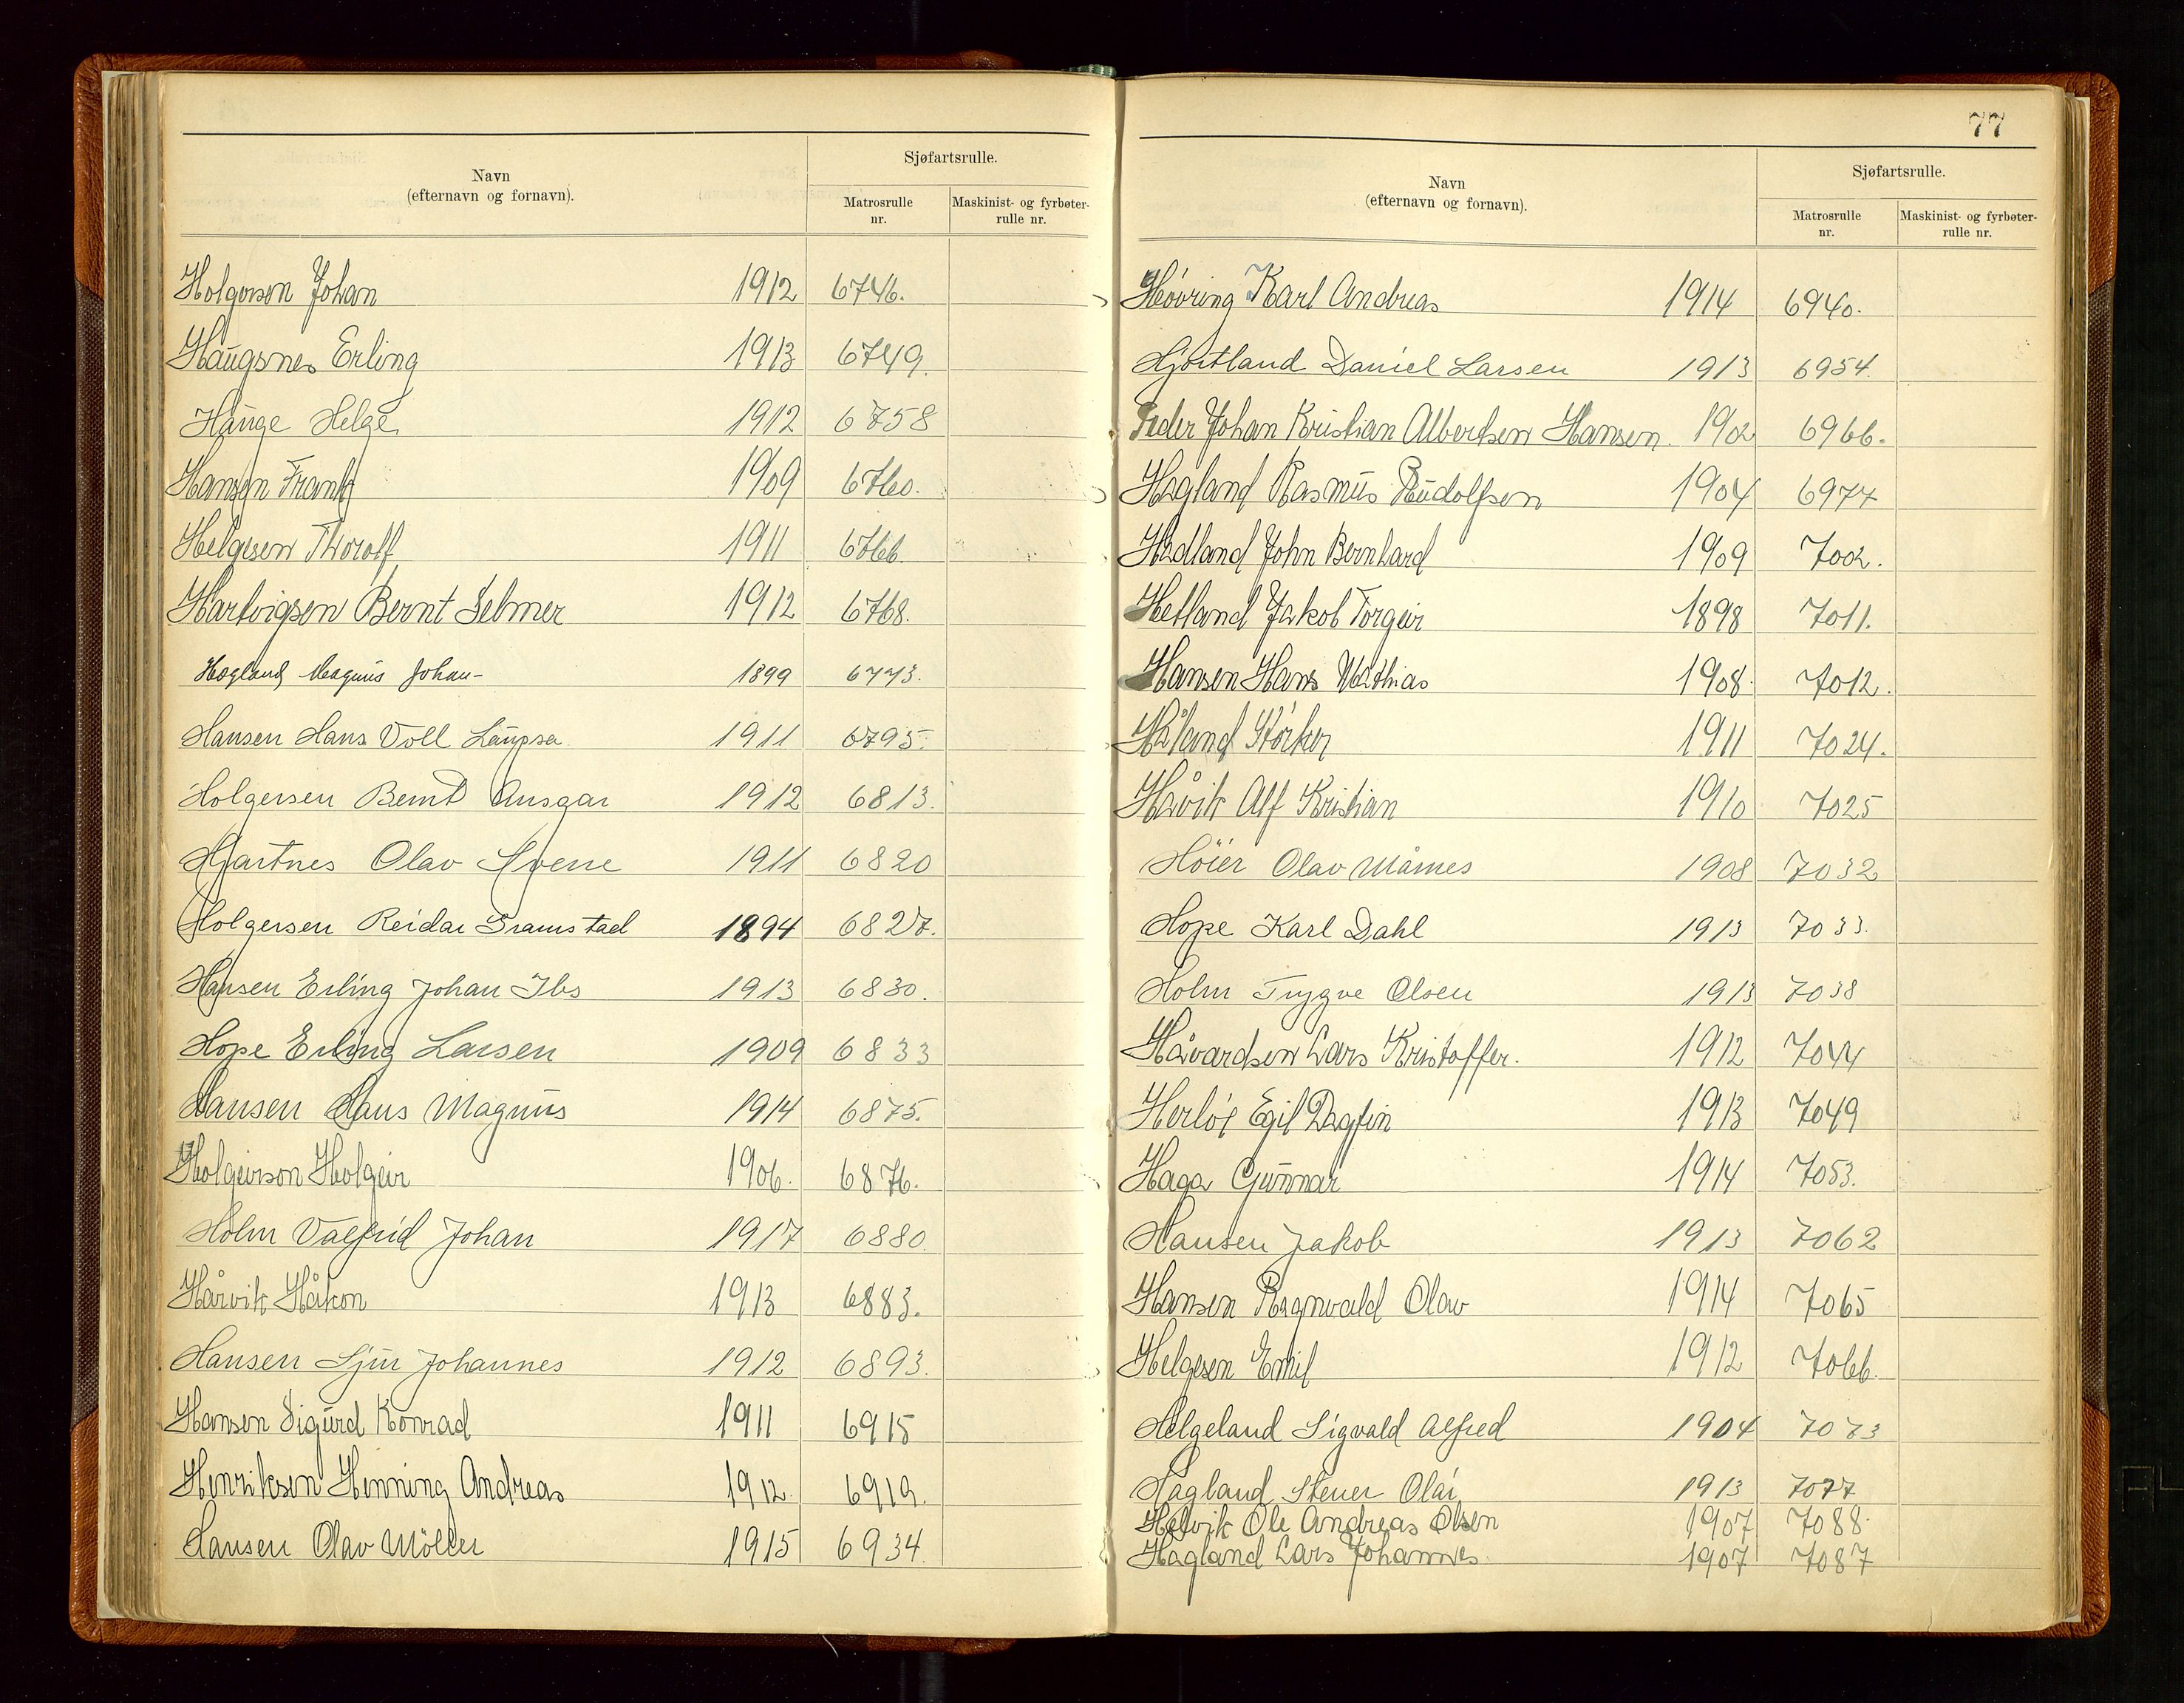 Navn
(efternavn og fornavn).
Sjøfartsrulle.
Matrosrulle
nr.
Maskinist- og fyrbøter-
rulle nr.
Holgersen Johan 1912 6746.
Haugsnes Erling 1913 6749.
Hauge Helge 1912 6758
Hansen Frank 1909 6760.
Helgesen Thorolf 1911 6766.
Hartvigsen Bernt Selmer 1912 6768.
Hagland Magnus Johan- 1899 6773.
Hansen Hans Voll 1911 6795.
Holgersen Bernt Ansgar 1912 6813.
Hjartnes Olav Sverre 1911 6820
Holgersen Reidar Gramstad 1894 6827.
Hansen Erling Johan Ibs 1913 6830.
Hope Erling Larsen 1909 6833
Hansen Hans Magnus 1914 6875.
Holgeirson Holgeir 1906. 6876.
Holm Valfrid Johan 1917 6880
Hårvik Håkon 1913 6883.
Hansen Sjur Johannes 1912 6893.
Hansen Sigurd Konrad 1911 6915
Henriksen Henning Andreas 1912. 6919.
Hansen Olav Möller 1915 6934
77
Navn
(efternavn og fornavn).
Sjøfartsrulle.
Matrosrulle
nr.
Maskinist- og fyrbøter-
rulle nr.
Høvring Karl Andreas 1914 6940.
Hjortland Daniel Larsen 1913 6954.
Peder Johan Kristian Albertsen Hansen. 1902 6966.
Hagland Rasmus Rudolfsen 1904 6977
Hadland John Bernhard 1909 7002.
Hetland Jakob Torgeir 1898 7011.
Hansen Hans Mathias 1908. 7012.
Håland Störker 1911 7024.
Håvik Alf Kristian 1910 7025
Höier Olav Månes 1908 7032
Hope Karl Dahl 1913 7033.
Holm Trygve Olsen 1913 7038
Håvardsen Lars Kristoffer. 1912 7044
Herlöe Egil Dagfin 1913 7049
Haga Gunnar 1914 7053.
Hansen Jakob 1913 7062
Hansen Ragnvald Olav 1914 7065
Helgesen Emil 1912 7066.
Helgeland Sigvald Alfred 1904 7073
Hagland Stener Olai 1913 7077
Hetvik Ole Andreas Olsen 1907 7088.
Hagland Lars Johannes. 1907 7087